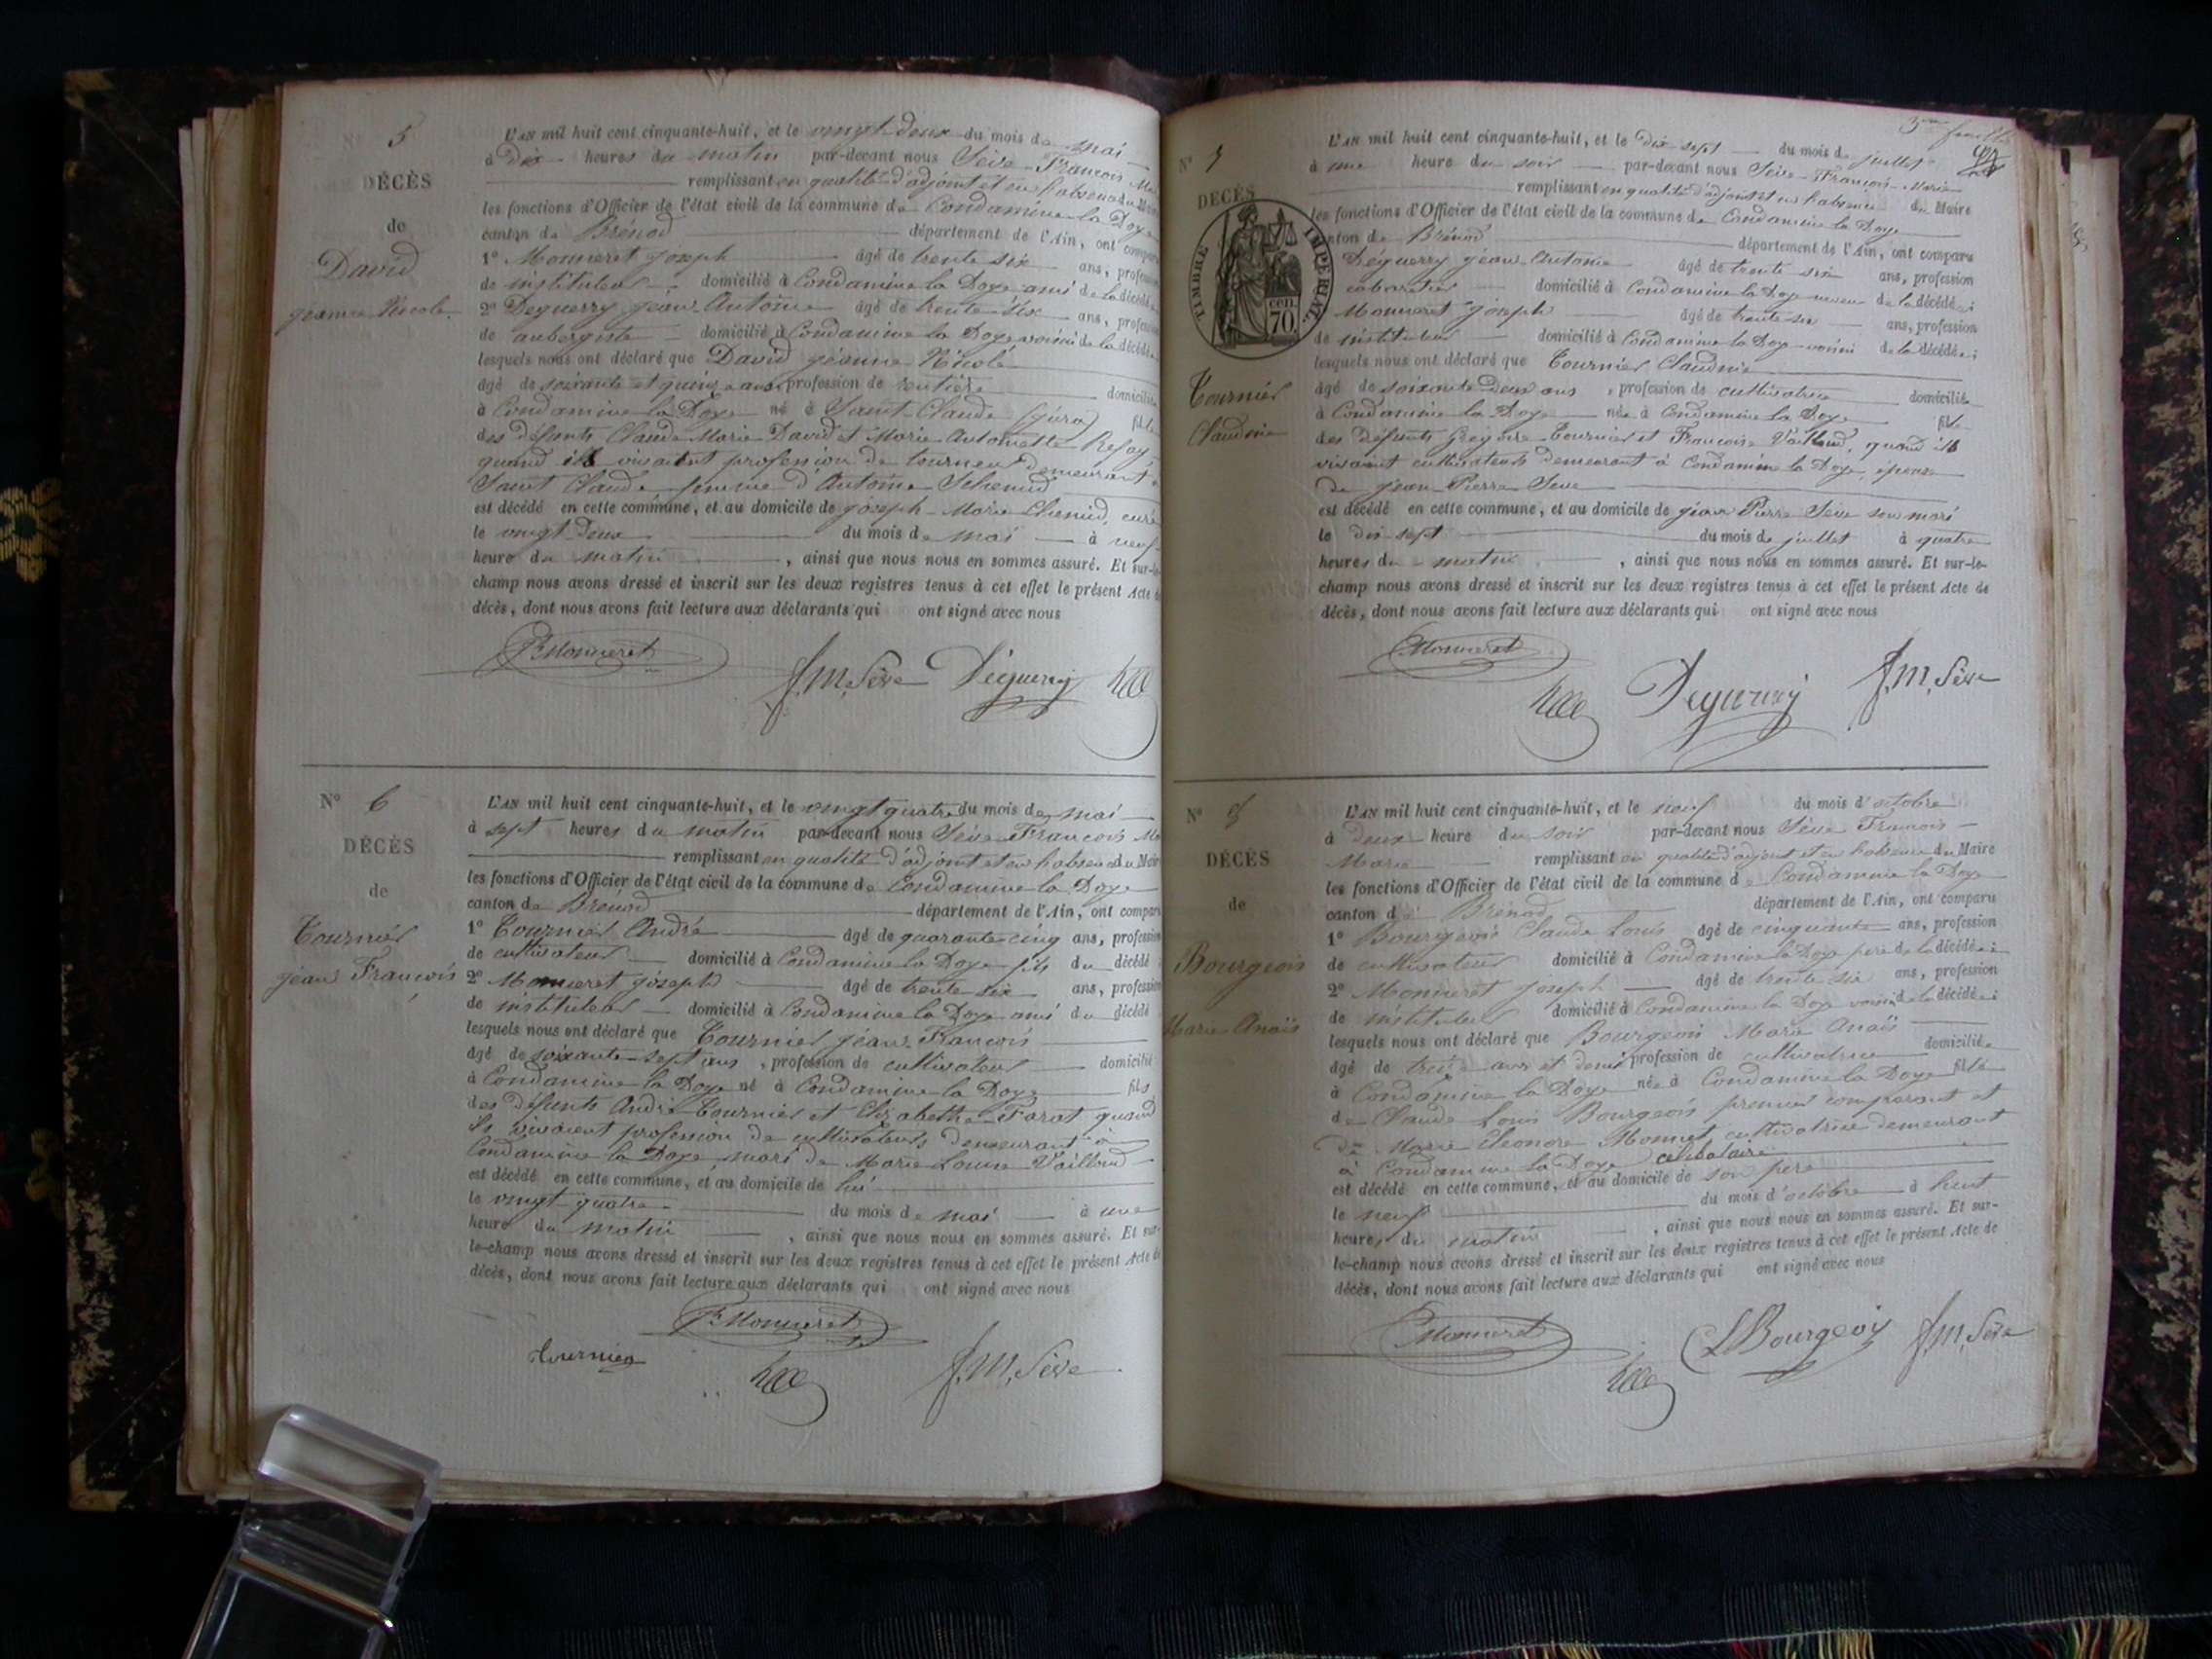 N° 5
DÉCÈS
de
David
jeanne Nicole
L'AN mil huit cent cinquante-huit, et le vingt deux du mois de mai
à Dix heures du matin par-devant nous Sève François
remplissant en qualité d'adjoint et en l'absence du Maire
les fonctions d'Officier de l'état civil de la commune de Condamine la Doye
canton de Brénod département de l'Ain, ont comparu
1° Monneret joseph âgé de trente six ans, profession
de instituteur domicilié à Condamine la Doye ami de la décédée
2° Deguerry jean Antoine âgé de trente six ans, profession
de aubergiste domicilié à Condamine la Doye voisin de la décédée
lesquels nous ont déclaré que David jeanne Nicole
âgé de soixante et quinze ans profession de rentière domiciliée
à Condamine la Doye né à Saint Claude (jura) fille
des défunts Claude Marie David et Marie Antoinette
quand ils vivaient profession de tourneur demeurant à
Saint Claude femme d'Antoine
est décédé en cette commune, et au domicile de joseph Marie curé
le vingt Deux du mois de mai à neuf
heure du matin , ainsi que nous nous en sommes assuré. Et sur-le-
champ nous avons dressé et inscrit sur les deux registres tenus à cet effet le présent Acte de
décès, dont nous avons fait lecture aux déclarants qui ont signé avec nous
Monneret
f. m. Sève Déguerry
N° 6
DÉCÈS
de
Tournier
jean François
L'AN mil huit cent cinquante-huit, et le vingt quatre du mois de mai
à sept heures du matin par-devant nous Sève François
remplissant en qualité d'adjoint et en l'absence du Maire
les fonctions d'Officier de l'état civil de la commune de Condamine la Doye
canton de Brénod département de l'Ain, ont comparu
1° Tournier André âgé de quarante cinq ans, profession
de cultivateur domicilié à Condamine la Doye fils du décédé
2° Monneret joseph âgé de trente six ans, profession
de instituteur domicilié à Condamine la Doye ami du décédé
lesquels nous ont déclaré que Tournier jean François
âgé de soixante-sept ans , profession de cultivateur domicilié
à Condamine la Doye né à Condamine la Doye fils
des défunts André Tournier et Elizabeth quand
ils vivaient profession de cultivateurs demeurant à
Condamine la Doye mari de Marie Louise Vailloud
est décédé en cette commune, et au domicile de lui
le vingt quatre du mois de mai à une
heure du matin , ainsi que nous nous en sommes assuré. Et sur-
le-champ nous avons dressé et inscrit sur les deux registres tenus à cet effet le présent Acte de
décès, dont nous avons fait lecture aux déclarants qui ont signé avec nous
Monneret
tournier f. m. Sève
3me feuillet
N° 7
DÉCÈS
TIMBRE IMPÉRIAL
70 cen
Tournier
Claudine
L'AN mil huit cent cinquante-huit, et le dix sept du mois de juillet
à une heure du soir par-devant nous Sève François Marie
remplissant en qualité d'adjoint et en l'absence du Maire
les fonctions d'Officier de l'état civil de la commune de Condamine la Doye
canton de Brénod département de l'Ain, ont comparu
Déguerry jean Antoine âgé de trente six ans, profession
cabaretier domicilié à Condamine la Doye neveu de la décédée ;
Monneret joseph âgé de trente six ans, profession
de instituteur domicilié à Condamine la Doye voisin de la décédée ;
lesquels nous ont déclaré que Tournier Claudine
âgé de soixante deux ans , profession de cultivatrice domiciliée
à Condamine la Doye née à Condamine la Doye fille
des défunts Grégoire Tournier et Françoise Vailloud, quand ils
vivaient cultivateurs demeurant à Condamine la Doye, épouse
de jean Pierre Sève
est décédé en cette commune, et au domicile de jean Pierre Sève son mari
le dix sept du mois de juillet à quatre
heures du matin , ainsi que nous nous en sommes assuré. Et sur-le-
champ nous avons dressé et inscrit sur les deux registres tenus à cet effet le présent Acte de
décès, dont nous avons fait lecture aux déclarants qui ont signé avec nous
Monneret
Déguerry f. m. Sève
N° 8
DÉCÈS
de
Bourgeois
Marie Anaïs
L'AN mil huit cent cinquante-huit, et le neuf du mois d'octobre
à deux heure du soir par-devant nous Sève François
Marie remplissant en qualité d'adjoint et en l'absence du Maire
les fonctions d'Officier de l'état civil de la commune de Condamine la Doye
canton de Brénod département de l'Ain, ont comparu
1° Bourgeois Claude Louis âgé de cinquante ans, profession
de cultivateur domicilié à Condamine la Doye père de la décédée ;
2° Monneret joseph âgé de trente six ans, profession
de instituteur domicilié à Condamine la Doye voisin de la décédée ;
lesquels nous ont déclaré que Bourgeois Marie Anaïs
âgé de treize ans et demi profession de cultivatrice domiciliée
à Condamine la Doye née à Condamine la Doye fille
de Claude Louis Bourgeois premier comparant et
de Marie Eléonore Monnet, cultivatrice demeurant
à Condamine la Doye célibataire
est décédé en cette commune, et au domicile de son père
le neuf du mois d'octobre à huit
heures du matin , ainsi que nous nous en sommes assuré. Et sur-
le-champ nous avons dressé et inscrit sur les deux registres tenus à cet effet le présent Acte de
décès, dont nous avons fait lecture aux déclarants qui ont signé avec nous
Monneret CLBourgeois f. m. Sève